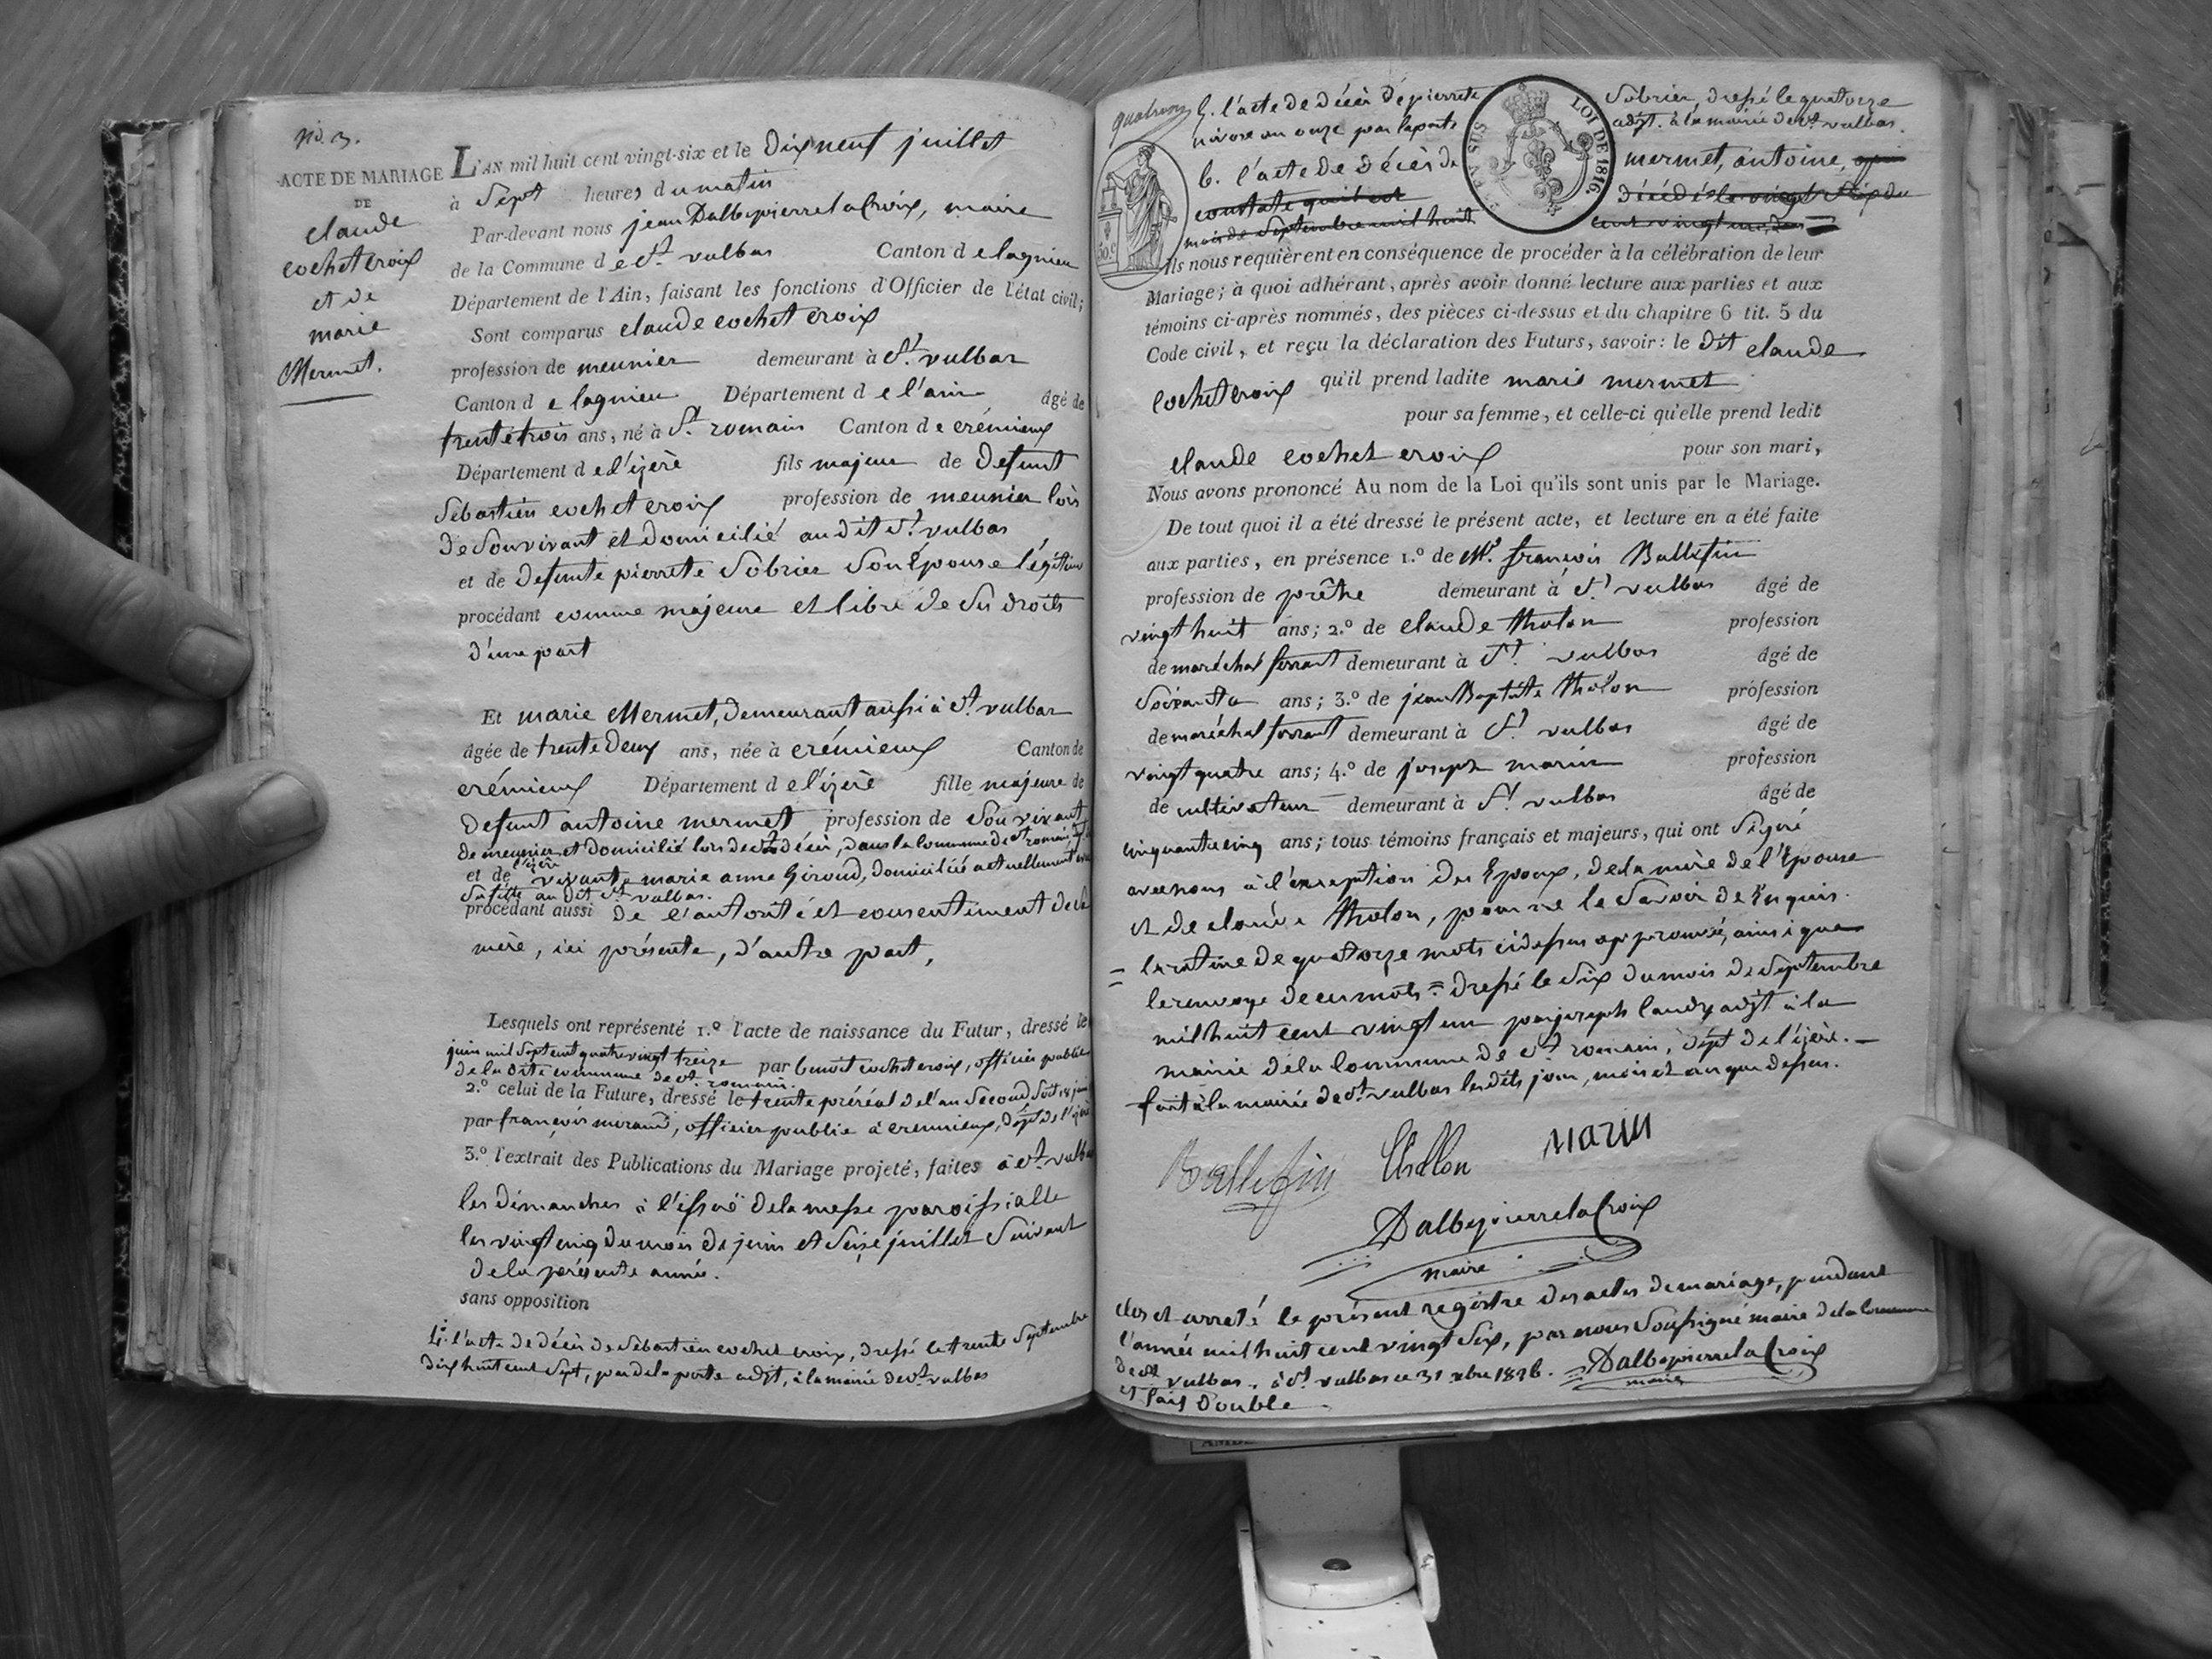 No. 3.
ACTE DE MARIAGE
DE
claude
cochet croix
et de
marie
Mermet.
L'AN mil huit cent vingt-six et le dix neuf juillet
à sept heures du matin
Par-devant nous jean Dalbepierre la Croix, maire
de la Commune de St. vulbas Canton de lagnieu
Département de l'Ain, faisant les fonctions d'Officier de l'état civil;
Sont comparus claude cochet croix
profession de meunier demeurant à St. vulbas
Canton de lagnieu Département de l'ain âgé de
trente trois ans, né à St. romain Canton de crémieux
Département de l'izère fils majeur de defunt
Sébastien cochet croix profession de meunier lors
de son vivant et domicilié au dit St. vulbas
et de defunte pierrete Sobrier son Epouse légitime
procédant comme majeur et libre de ses droits
d'une part
Et marie Mermet, demeurant aussi à St. vulbas
âgée de trente deux ans, née à crémieux Canton de
crémieux Département de l'izère fille majeure de
defunt antoine mermet profession de son vivant
de meunier et domicilié lors de son décès, dans la commune de St. romain, dépt. de
l'izère
et de vivante marie anne Giroud, domiciliée actuellement avec
sa fille au dit St. vulbas.
procédant aussi de l'autorité et consentement de sa
mère, ici présente, d'autre part,
Lesquels ont représenté 1.º l'acte de naissance du Futur, dressé le
juin mil sept cent quatre vingt treize par benoit cochet croix, officier public
de la dite commune de St. romain.
2.º celui de la Future, dressé le trente préréal de l'an second soit 18 juin
par françois morand, officier public à cremieux, dépt. de l'izère
3.º l'extrait des Publications du Mariage projeté, faites à St. vulbas
les dimanches à l'issue de la messe paroissialle
les vingt cinq du mois de juin et seize juillet suivant
de la présente année.
sans opposition
4.º l'acte de décès de Sébastien cochet croix, dressé le trente septembre
dix huit cent sept, par dela porte adjt, à la mairie de St. vulbas
5. l'acte de décès de pierrete Sobrier, dressé le quatorze
nivose an onze par laporte adjt. à la mairie de St. vulbas.
6. l'acte de décès de mermet, antoine, qui
constate qu'il est décédé le vingt six du
mois de septembre mil huit cent vingt un, dans =
LOI DE 1816.
50 c.
Ils nous requièrent en conséquence de procéder à la célébration de leur
Mariage; à quoi adhérant, après avoir donné lecture aux parties et aux
témoins ci-après nommés, des pièces ci-dessus et du chapitre 6 tit. 5 du
Code civil, et reçu la déclaration des Futurs, savoir: le dit claude
cochet croix qu'il prend ladite marie mermet
pour sa femme, et celle-ci qu'elle prend ledit
claude cochet croix pour son mari,
Nous avons prononcé Au nom de la Loi qu'ils sont unis par le Mariage.
De tout quoi il a été dressé le présent acte, et lecture en a été faite
aux parties, en présence 1.º de Mr. françois Balleſin
profession de prêtre demeurant à St. vulbas âgé de
vingt huit ans; 2.º de claude tholon profession
de maréchal ferrant demeurant à St. vulbas âgé de
soixante ans; 3.º de jean Baptiste tholon profession
de maréchal ferrant demeurant à St. vulbas âgé de
vingt quatre ans; 4.º de joseph marin profession
de cultivateur demeurant à St. vulbas âgé de
cinquante cinq ans; tous témoins français et majeurs, qui ont signé
avec nous à l'exception des Epoux, de la mère de l'Epouse
et de claude tholon, pour ne le savoir de Enquis.
la rature de quatorze mots cidessus approuvée, ainsi que
le renvoye de ces mots = dressé le six du mois de septembre
mil huit cent vingt un par joseph landy adjt à la
mairie de la commune de St. romain, dépt de l'izère. —
fait à la mairie de St. vulbas les dits jour, mois et an que dessus.
Balleſin tholon MARIN
Dalbepierre la Croix
maire
clos et arreté le présent registre des actes de mariage, pendant
l'année mil huit cent vingt six, par nous soussigné maire de la commune
de St vulbas. à St. vulbas ce 31 xbre 1826. Dalbepierre la Croix
maire
et fait double